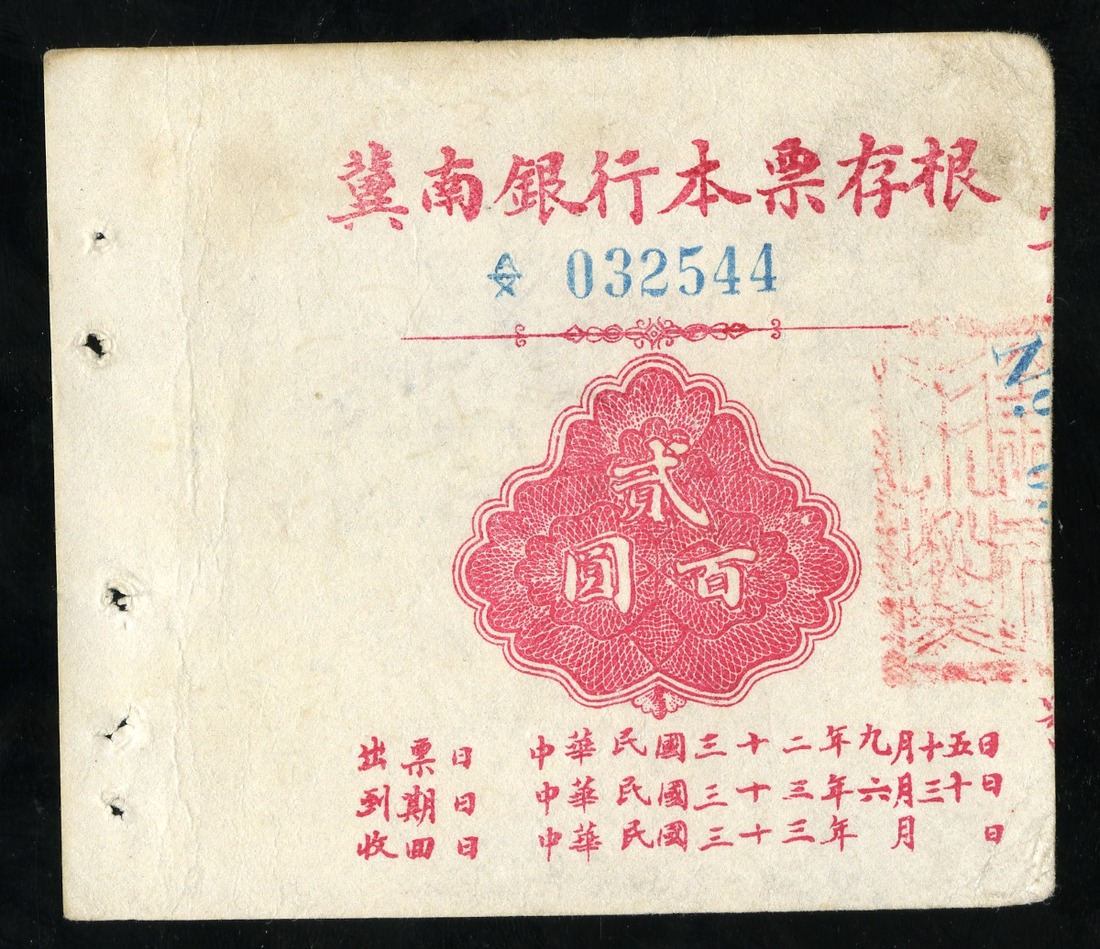 冀南銀行本票存根
032544
貳百圓
出票日 中華民國三十二年九月十五日
到期日 中華民國三十三年六月三十日
收回日 中華民國三十三年 月 日
No